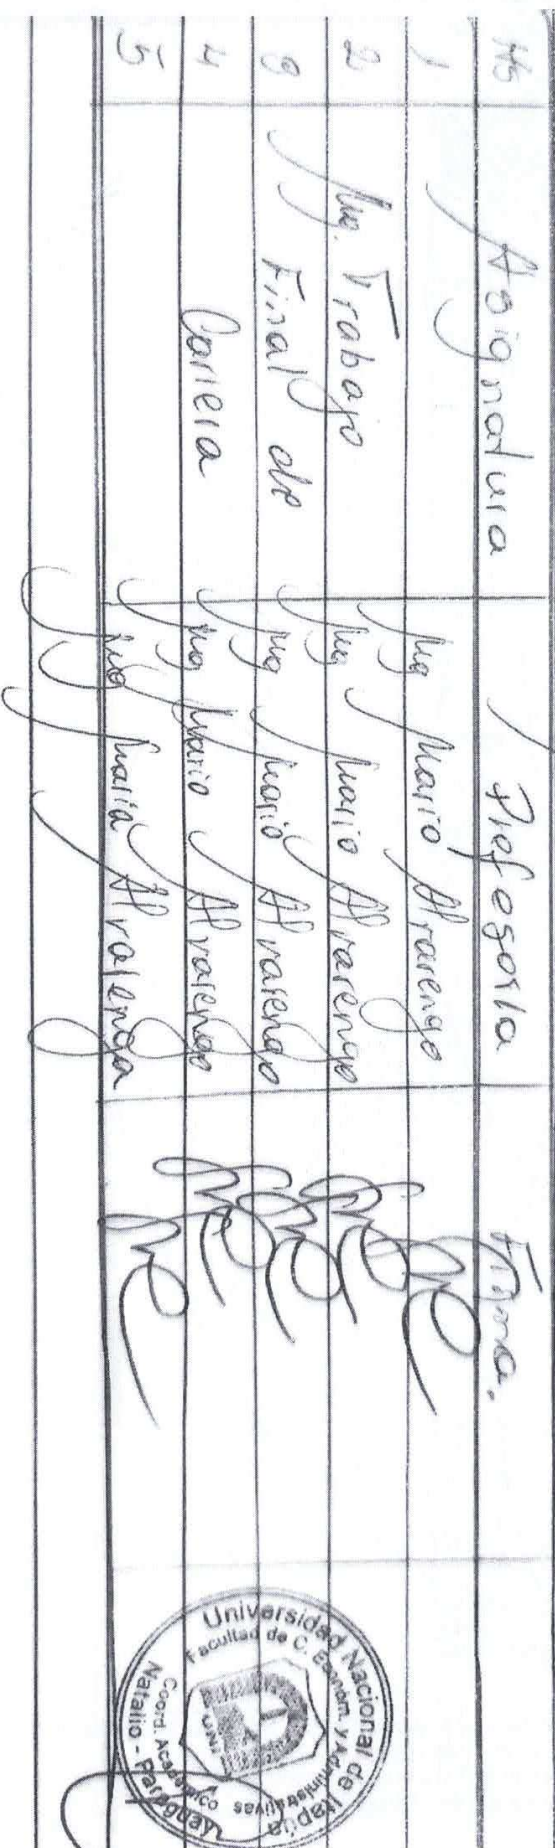 Hs Asignatura Profesor/a Firma.
1 Mg Mario Alvarenga
2 Mg. Trabajo Mg Mario Alvarenga
3 Final de Mg Mario Alvarenga
4 Carrera Mg Mario Alvarenga
5 Mg Mario Alvarenga
Universidad Nacional de Itapúa
Facultad de C. Econom. y Administrativas
Coord. Académico
Natalio - Paraguay